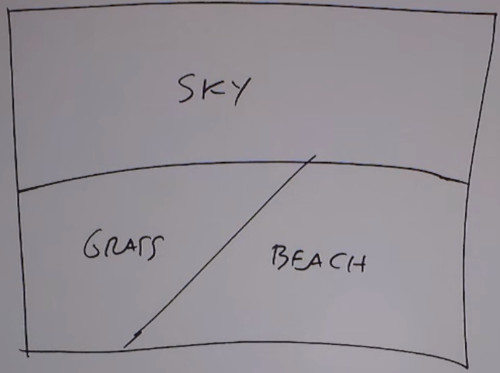 SKY
GRASS
BEACH